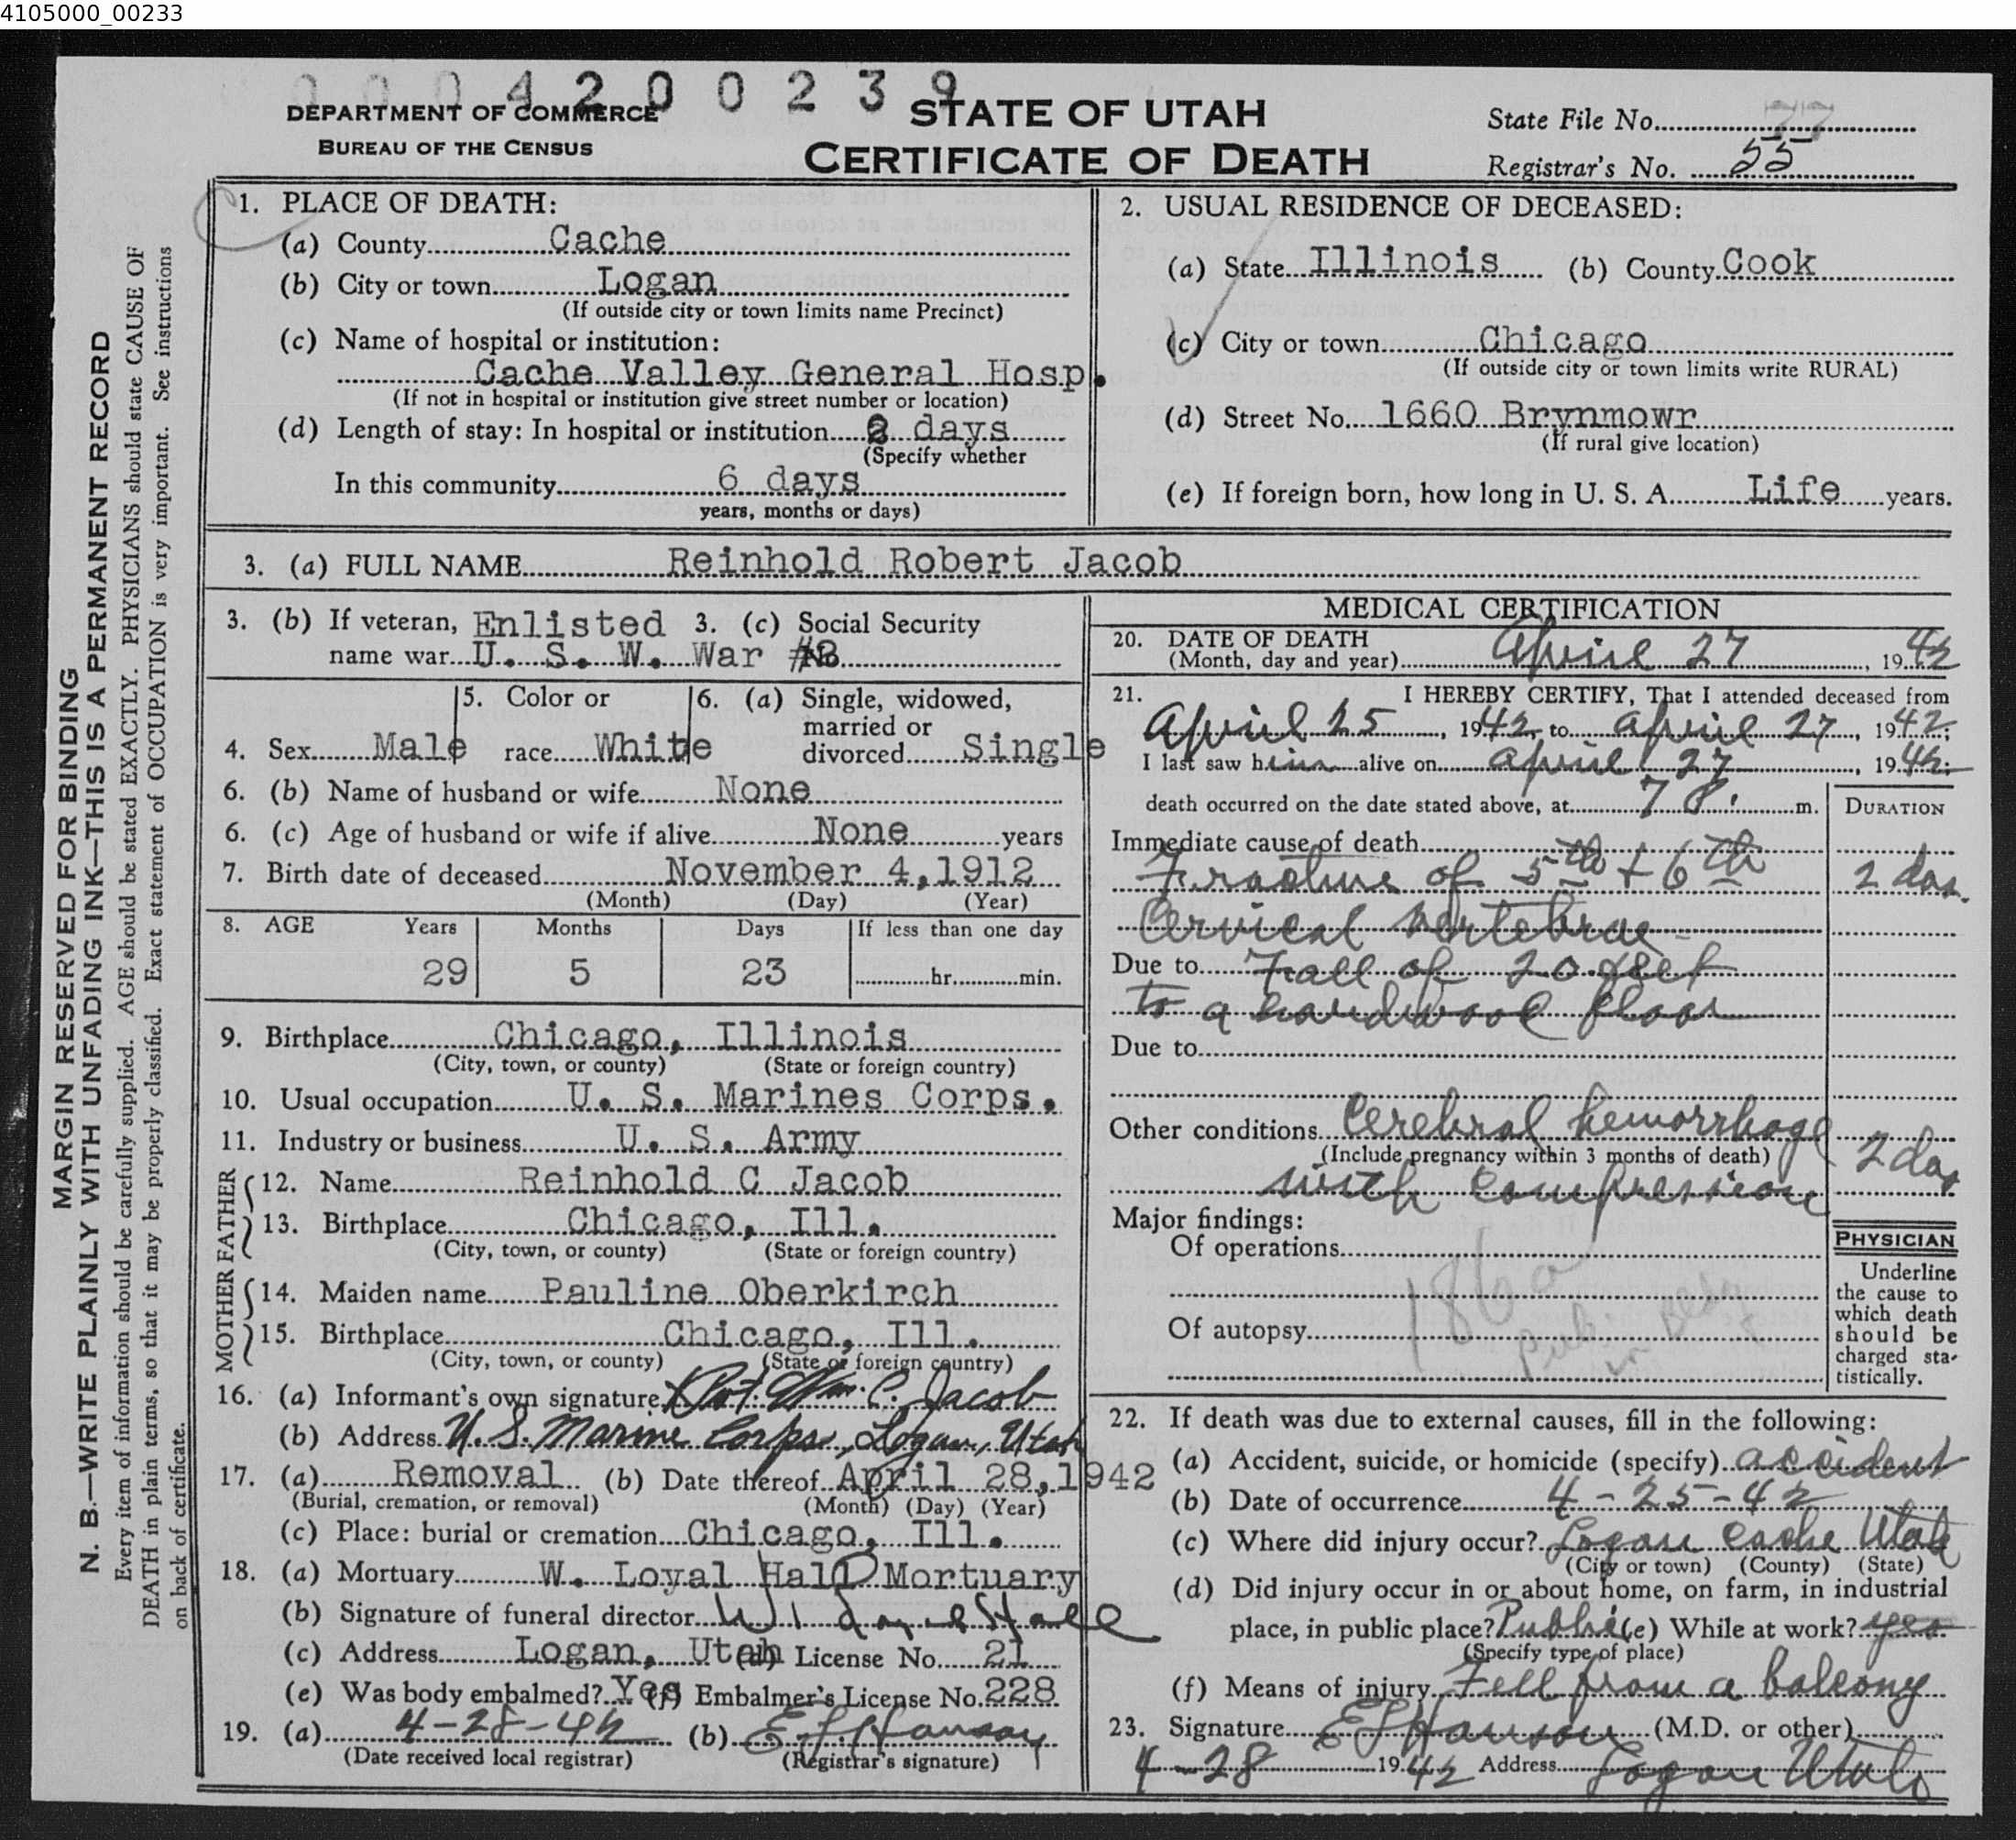 4105000_00233
0 0 0 4 2 0 0 2 3 9
DEPARTMENT OF COMMERCE
BUREAU OF THE CENSUS
STATE OF UTAH
CERTIFICATE OF DEATH
State File No. 77
Registrar's No. 55
MARGIN RESERVED FOR BINDING
N. B.—WRITE PLAINLY WITH UNFADING INK—THIS IS A PERMANENT RECORD
Every item of information should be carefully supplied. AGE should be stated EXACTLY. PHYSICIANS should state CAUSE OF
DEATH in plain terms, so that it may be properly classified. Exact statement of OCCUPATION is very important. See instructions
on back of certificate.
1. PLACE OF DEATH:
(a) County Cache
(b) City or town Logan
(If outside city or town limits name Precinct)
(c) Name of hospital or institution:
Cache Valley General Hosp.
(If not in hospital or institution give street number or location)
(d) Length of stay: In hospital or institution 2 days
(Specify whether
In this community 6 days
years, months or days)
2. USUAL RESIDENCE OF DECEASED:
(a) State Illinois (b) County Cook
(c) City or town Chicago
(If outside city or town limits write RURAL)
(d) Street No. 1660 Brynmowr
(If rural give location)
(e) If foreign born, how long in U. S. A. Life years.
3. (a) FULL NAME Reinhold Robert Jacob
3. (b) If veteran, Enlisted 3. (c) Social Security
name war U. S. W. War #2 No.
4. Sex Male 5. Color or race White 6. (a) Single, widowed, married or divorced Single
6. (b) Name of husband or wife None
6. (c) Age of husband or wife if alive None years
7. Birth date of deceased November 4, 1912
(Month) (Day) (Year)
8. AGE Years Months Days If less than one day
29 5 23 hr. min.
9. Birthplace Chicago, Illinois
(City, town, or county) (State or foreign country)
10. Usual occupation U. S. Marines Corps.
11. Industry or business U. S. Army
FATHER
12. Name Reinhold C Jacob
13. Birthplace Chicago, Ill.
(City, town, or county) (State or foreign country)
MOTHER
14. Maiden name Pauline Oberkirch
15. Birthplace Chicago, Ill.
(City, town, or county) (State or foreign country)
16. (a) Informant's own signature X Pvt. Wm. C. Jacob
(b) Address U. S. Marine Corps, Logan, Utah
17. (a) Removal (b) Date thereof April 28, 1942
(Burial, cremation, or removal) (Month) (Day) (Year)
(c) Place: burial or cremation Chicago, Ill.
18. (a) Mortuary W. Loyal Hall Mortuary
(b) Signature of funeral director W. Loyal Hall
(c) Address Logan, Utah (d) License No. 21
(e) Was body embalmed? Yes (f) Embalmer's License No. 228
19. (a) 4-28-42 (b) E J Hanson
(Date received local registrar) (Registrar's signature)
MEDICAL CERTIFICATION
20. DATE OF DEATH
(Month, day and year) April 27, 1942
21. I HEREBY CERTIFY, That I attended deceased from
April 25, 1942, to April 27, 1942;
I last saw him alive on April 27, 1942;
death occurred on the date stated above, at 7 P. m.
DURATION
Immediate cause of death
Fracture of 5th + 6th 2 das.
Cervical Vertebrae
Due to Fall of 20 feet
to a hardwood floor
Due to
Other conditions Cerebral hemorrhage
(Include pregnancy within 3 months of death) 2 das
with compression
Major findings:
Of operations
186a
Of autopsy
Pub.
in
PHYSICIAN
Underline
the cause to
which death
should be
charged sta-
tistically.
22. If death was due to external causes, fill in the following:
(a) Accident, suicide, or homicide (specify) accident
(b) Date of occurrence 4-25-42
(c) Where did injury occur? Logan Cache Utah
(City or town) (County) (State)
(d) Did injury occur in or about home, on farm, in industrial
place, in public place? Public (e) While at work? yes
(Specify type of place)
(f) Means of injury Fell from a balcony
23. Signature E J Hanson (M.D. or other)
4-28 1942 Address Logan Utah